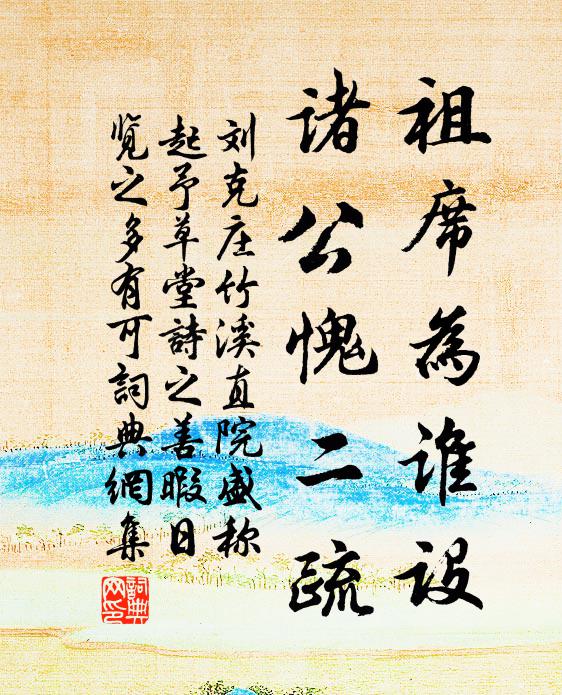 祖席為誰設
諸公愧二疏
刘克庄竹溪直院盛称
起予草堂詩之善暇日
览之多有可詞典網集
詞典